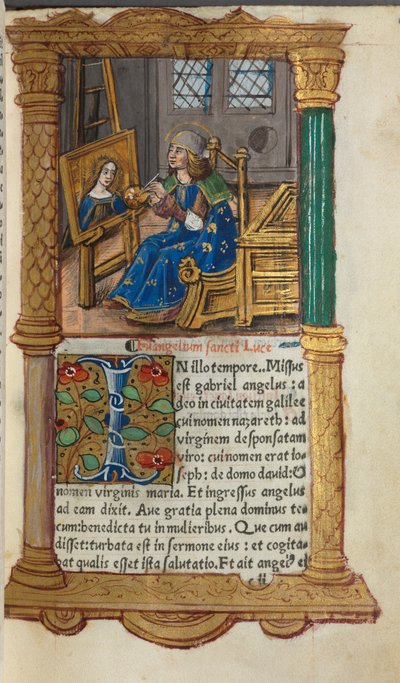 Euangelium sancti Luce
IN illo tempore.. Missus
est gabriel angelus : a
deo in civitatem galilee
cui nomen nazareth : ad
virginem desponsatam
viro: cui nomen erat io-
seph: de domo david: &
nomen virginis maria. Et ingressus angelus
ad eam dixit. Ave gratia plena dominus te-
cum: benedicta tu in mulieribus. Que cum au
disset: turbata est in sermone eius : et cogita-
bat qualis esset ista salutatio. Et ait angel' ei